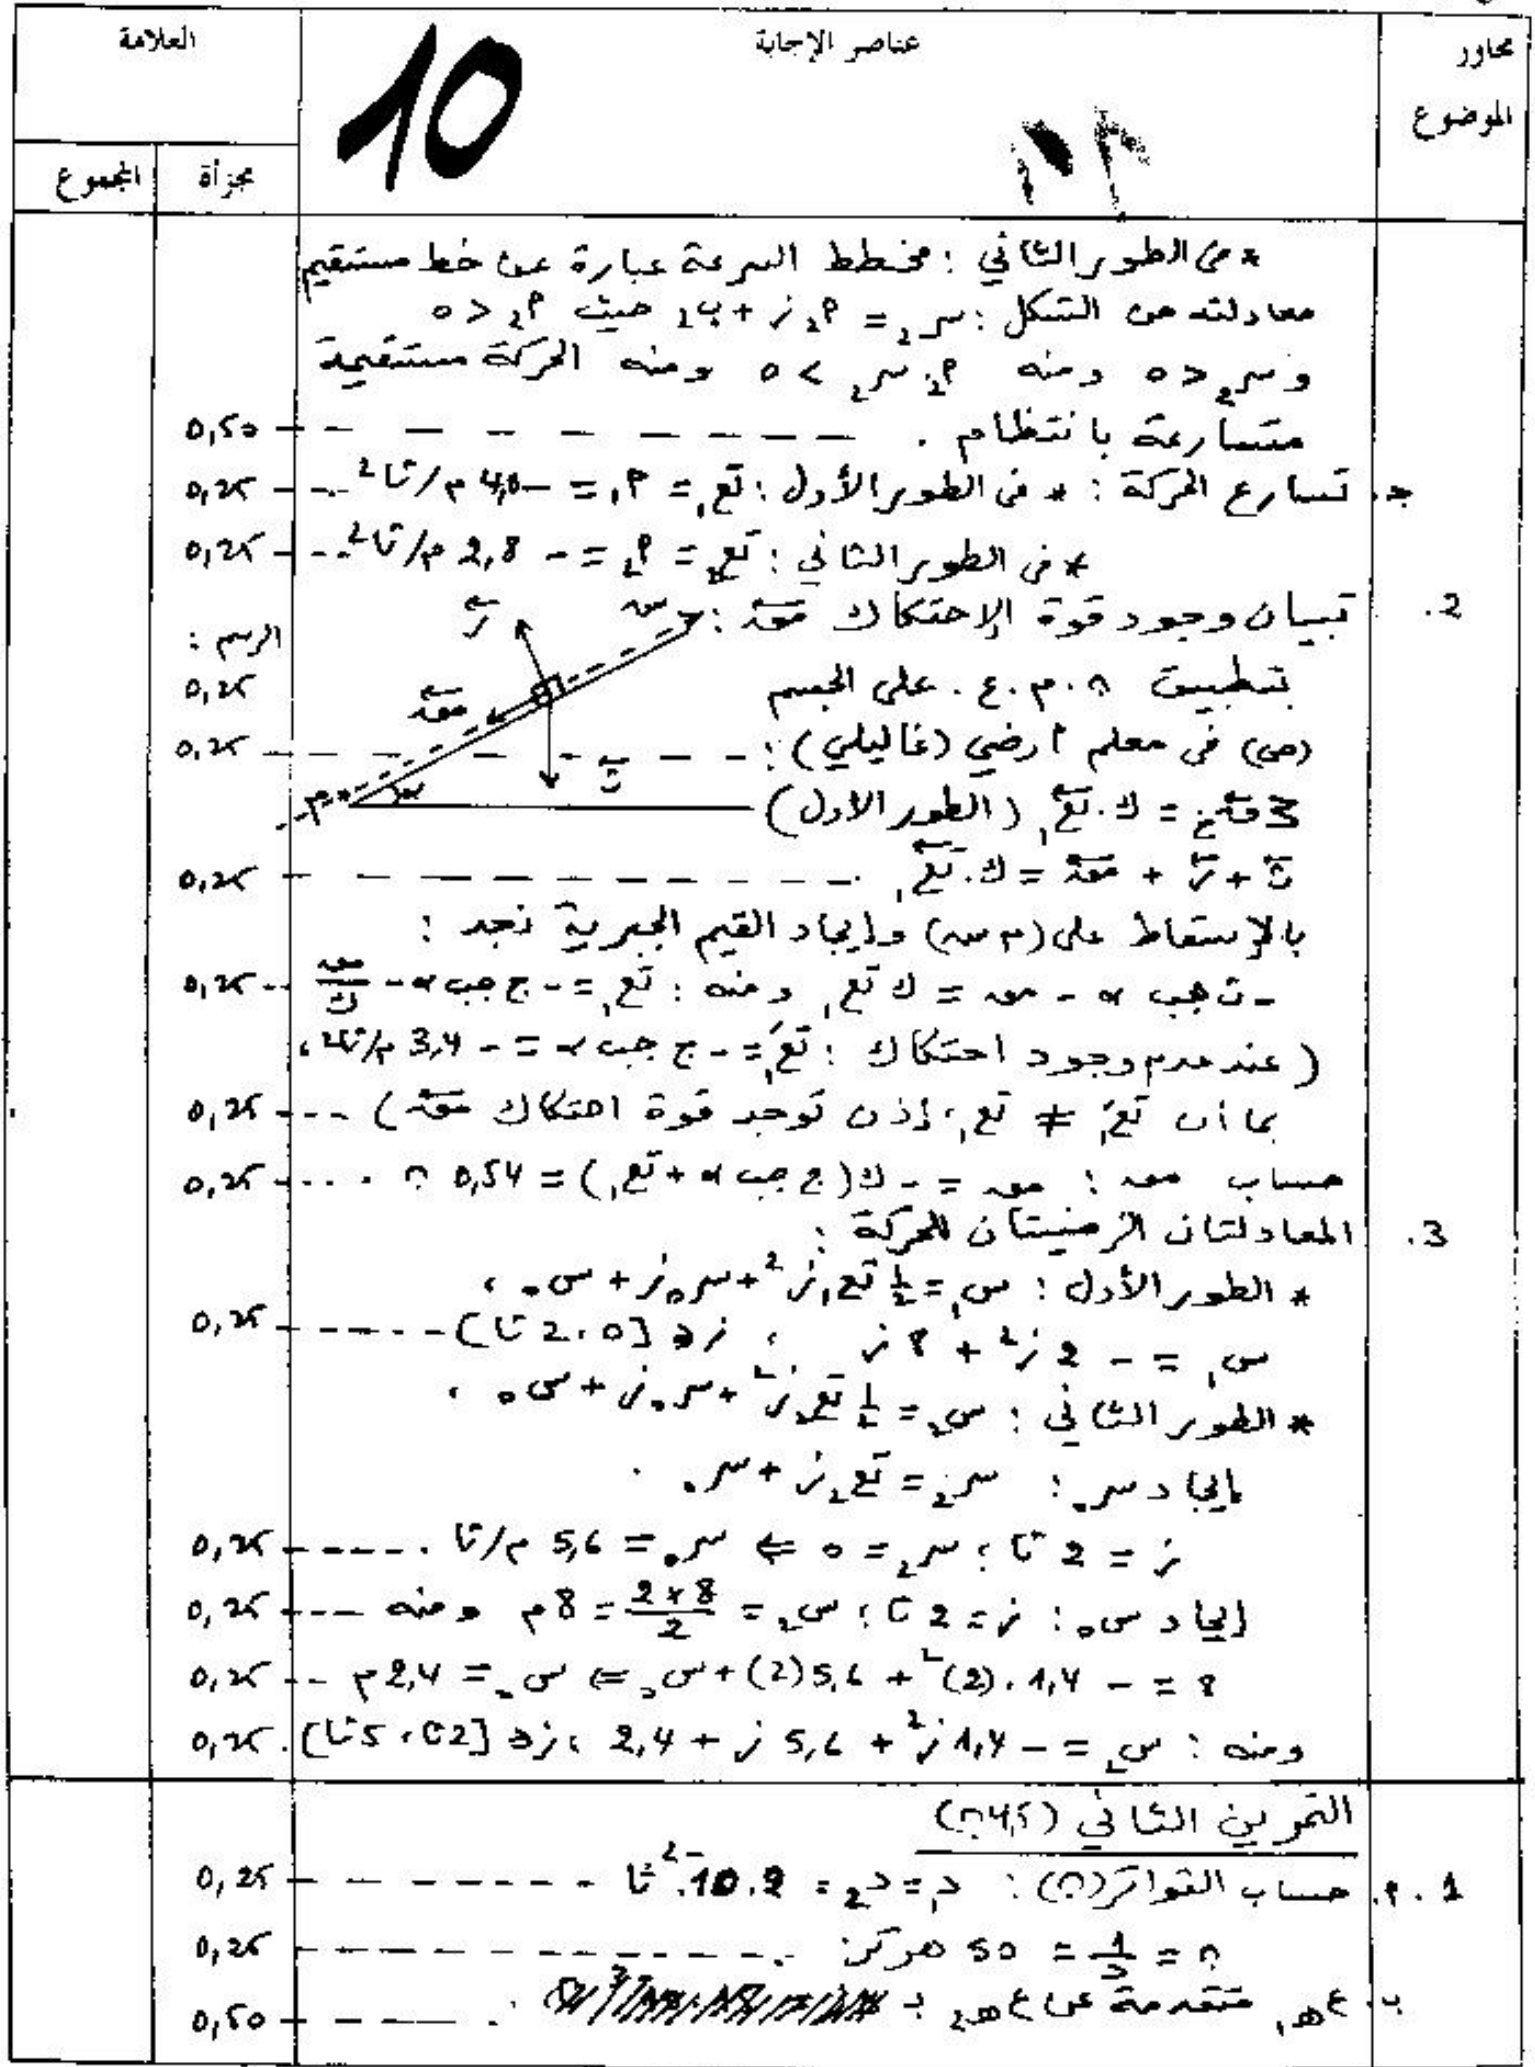 محاور الموضوع
عناصر الإجابة
العلامة
مجزأة
المجموع
10
* في الطور الثاني : مخطط السرعة عبارة عن خط مستقيم
معادلته من الشكل : سر₂ = م₂ ز + ب₂ حيث م₂ < 0
و سر₂ < 0 ومنه م₂ . سر₂ > 0 ومنه الحركة مستقيمة
متسارعة بانتظام . 0,50
ج. تسارع الحركة : * في الطور الأول : تع₁ = م₁ = -4,0 م/ثا² 0,25
* في الطور الثاني : تع₂ = م₂ = - 2,8 م/ثا² 0,25
2. تبيان وجود قوة الإحتكاك قعد :
الرسم :
0,25
بتطبيق ن.م.ع. على الجسم
(ص) في معلم أرضي (غاليلي) : 0,25
Σ قخ = ك.تع₁ (الطور الأول)
ث + ر + قعد = ك.تع₁ 0,25
بالإسقاط على (م س) وإيجاد القيم الجبرية نجد :
- ث جب α - قعد = ك تع₁ ومنه : تع₁ = - ج جب α - قعد/ك 0,25
( عند عدم وجود احتكاك : تع₁' = - ج جب α = - 3,4 م/ثا² ،
بما أن تع₁' ≠ تع₁ ، إذن توجد قوة احتكاك قعد ) 0,25
حساب قعد : قعد = - ك(ج جب α + تع₁) = 0,54 ن 0,25
3. المعادلتان الزمنيتان للحركة :
* الطور الأول : س₁ = ½ تع₁ ز² + سر₀ ز + س₀ ،
س₁ = - 2 ز² + 8 ز ، ز ∈ [0 ، 2 ثا] 0,25
* الطور الثاني : س₂ = ½ تع₂ ز² + سر₀ ز + س₀ ،
إيجاد سر₀ : سر₂ = تع₂ ز + سر₀ .
ز = 2 ثا ؛ سر₂ = 0 ⇐ سر₀ = 5,6 م/ثا . 0,25
إيجاد س₀ : ز = 2 ثا ؛ س₂ = 2×8/2 = 8 م ومنه 0,25
8 = - 1,4 . (2)² + 5,6 (2) + س₀ ⇐ س₀ = 2,4 م 0,25
ومنه : س₂ = - 1,4 ز² + 5,6 ز + 2,4 ، ز ∈ [2 ثا ، 5 ثا] . 0,25
التمرين الثاني (4,5 ن)
1. م. حساب التواتر (ن) : د₁ = د₂ = 2.10⁻² ثا 0,25
ن = 1/د = 50 هرتز . 0,25
ب. ع هـ₁ متقدمة عن ع هـ₂ بـ 0,50